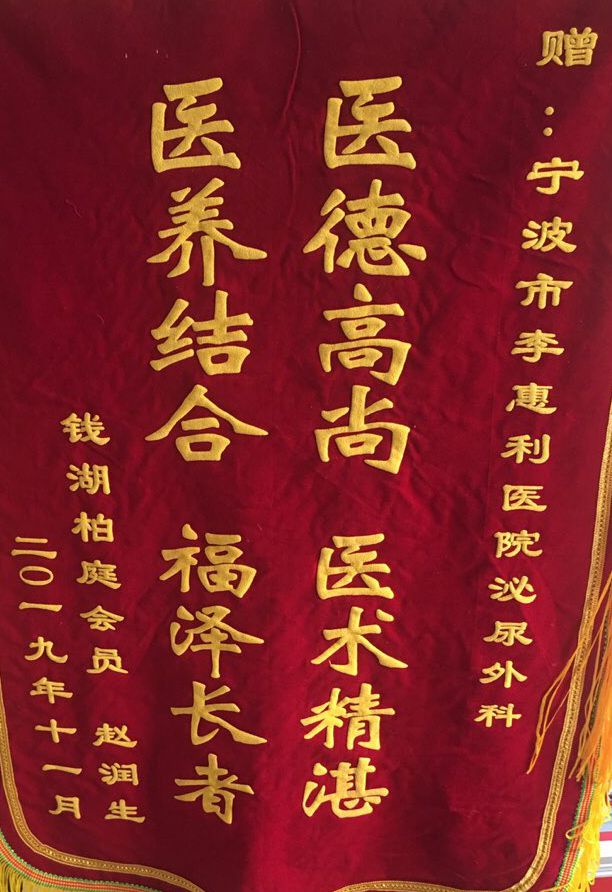 赠：宁波市李惠利医院泌尿外科
医德高尚 医术精湛
医养结合 福泽长者
钱湖柏庭会员 赵润生
二〇一九年十一月